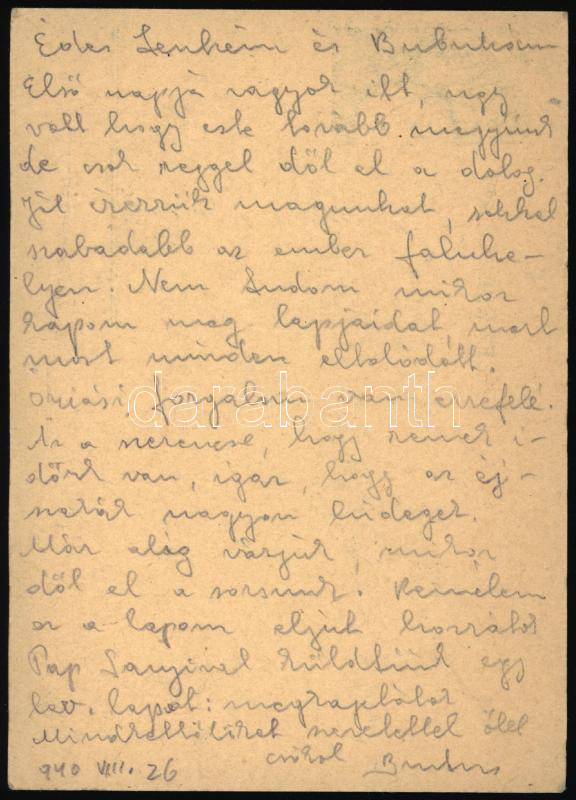 Édes Lenkém és Bubukám
Első napja vagyok itt, úgy
volt hogy este tovább megyünk
de csak reggel dől el a dolog.
Jól érezzük magunkat, sokkal
szabadabb az ember faluhe-
lyen. Nem tudom mikor
kapom meg lapjaidat mert
most minden eltolódott.
Óriási forgalom van errefelé.
Az a szerencse, hogy remek i-
dőnk van, igaz, hogy az éj-
szakák nagyon hidegek.
Már alig várjuk, mikor
dől el a sorsunk. Remélem
ez a lapom eljut hozzátok
Pap Sanyival küldtünk egy
lev. lapot: megkaptátok
Mindkettőtöket szeretettel ölel
csókol
940 VIII. 26
darabanth